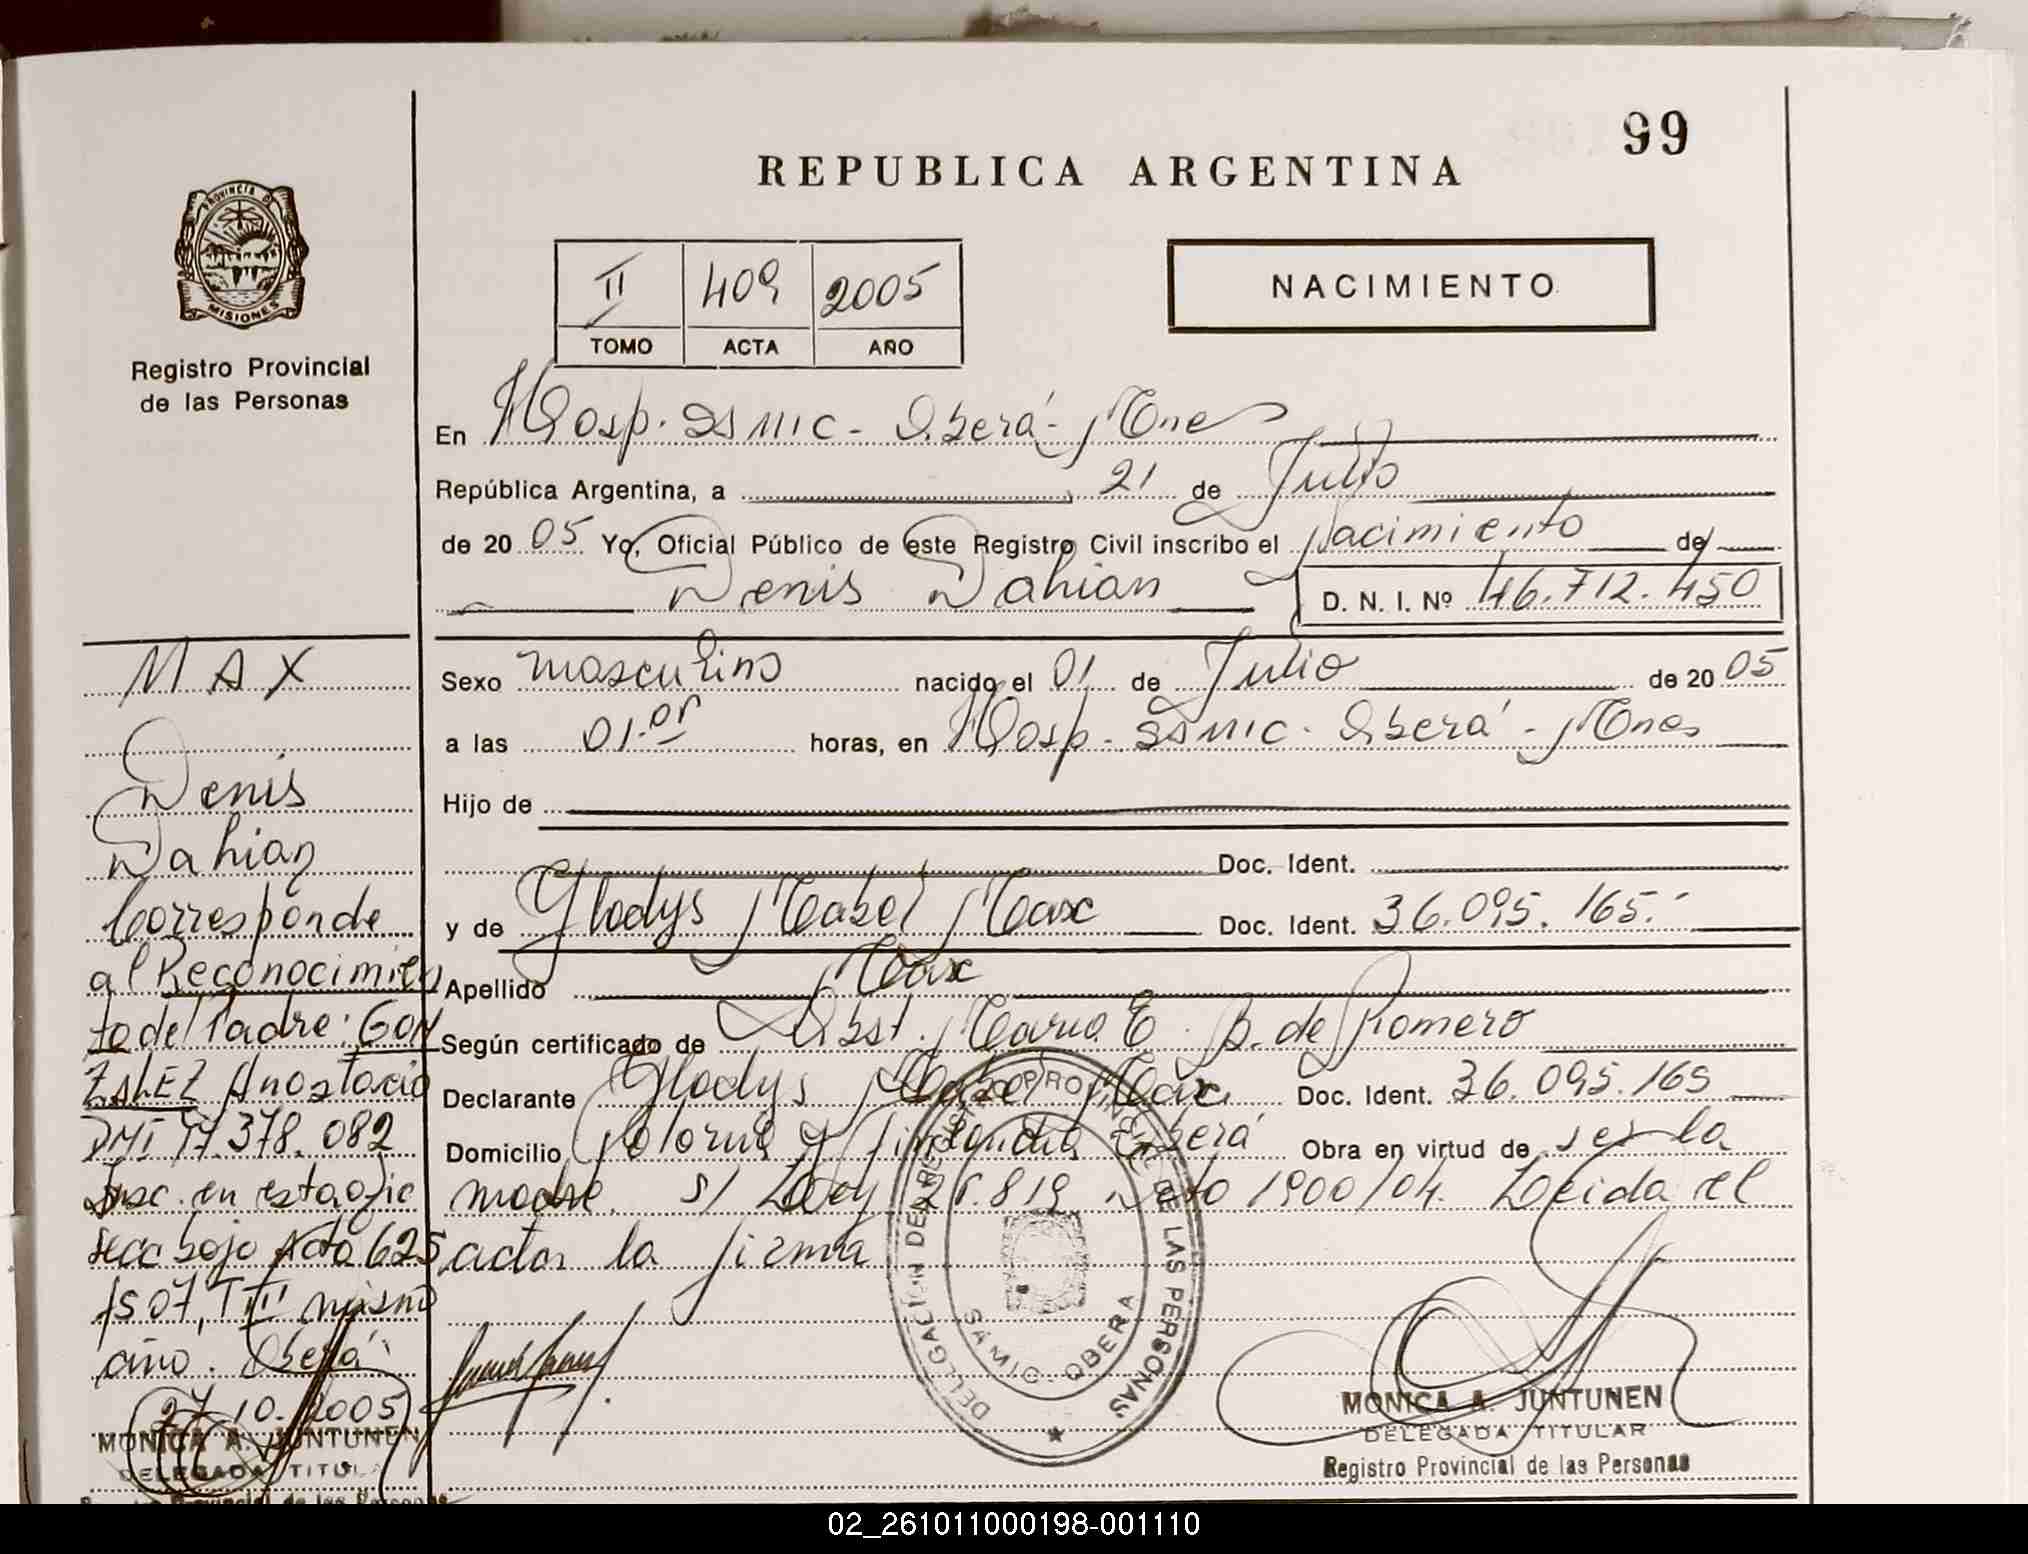 99
REPUBLICA ARGENTINA
PROVINCIA D
MISIONES
Registro Provincial
de las Personas
II 409 2005
TOMO ACTA AÑO
NACIMIENTO
En Hosp. SAMIC - Oberá - Mnes
República Argentina, a 21 de Julio
de 2005 Yo, Oficial Público de este Registro Civil inscribo el Nacimiento de
Denis Dahian D. N. I. Nº 46.712.450
Sexo masculino nacido el 01 de Julio de 2005
a las 01.or horas, en Hosp - SAMIC - Oberá - Mnes
Hijo de
Doc. Ident.
y de Gladys Mabel Max Doc. Ident. 36.095.165.-
Apellido Max
Según certificado de Obst. Maria E. B. de Romero
Declarante Gladys Mabel Max Doc. Ident. 36.095.165
Domicilio Colonia Finlandia Oberá Obra en virtud de ser la
madre. s/ Ley 25.819 Dcto 1900/04. Leida el
acta la firma
MAX
Denis
Dahian
Corresponde
al Reconocimien
to del Padre: GON
ZALEZ Anastacio
DNI 17.378.082
Insc. en esta ofic
secc bajo Acta 625
fs 07, T III mismo
año. Oberá
27.10.2005
MONICA A. JUNTUNEN
DELEGADA TITUL
DELEGACION DEL REGISTRO PROVINCIAL DE LAS PERSONAS
SAMIC OBERA
MONICA A. JUNTUNEN
DELEGADA TITULAR
Registro Provincial de las Personas
02_261011000198-001110